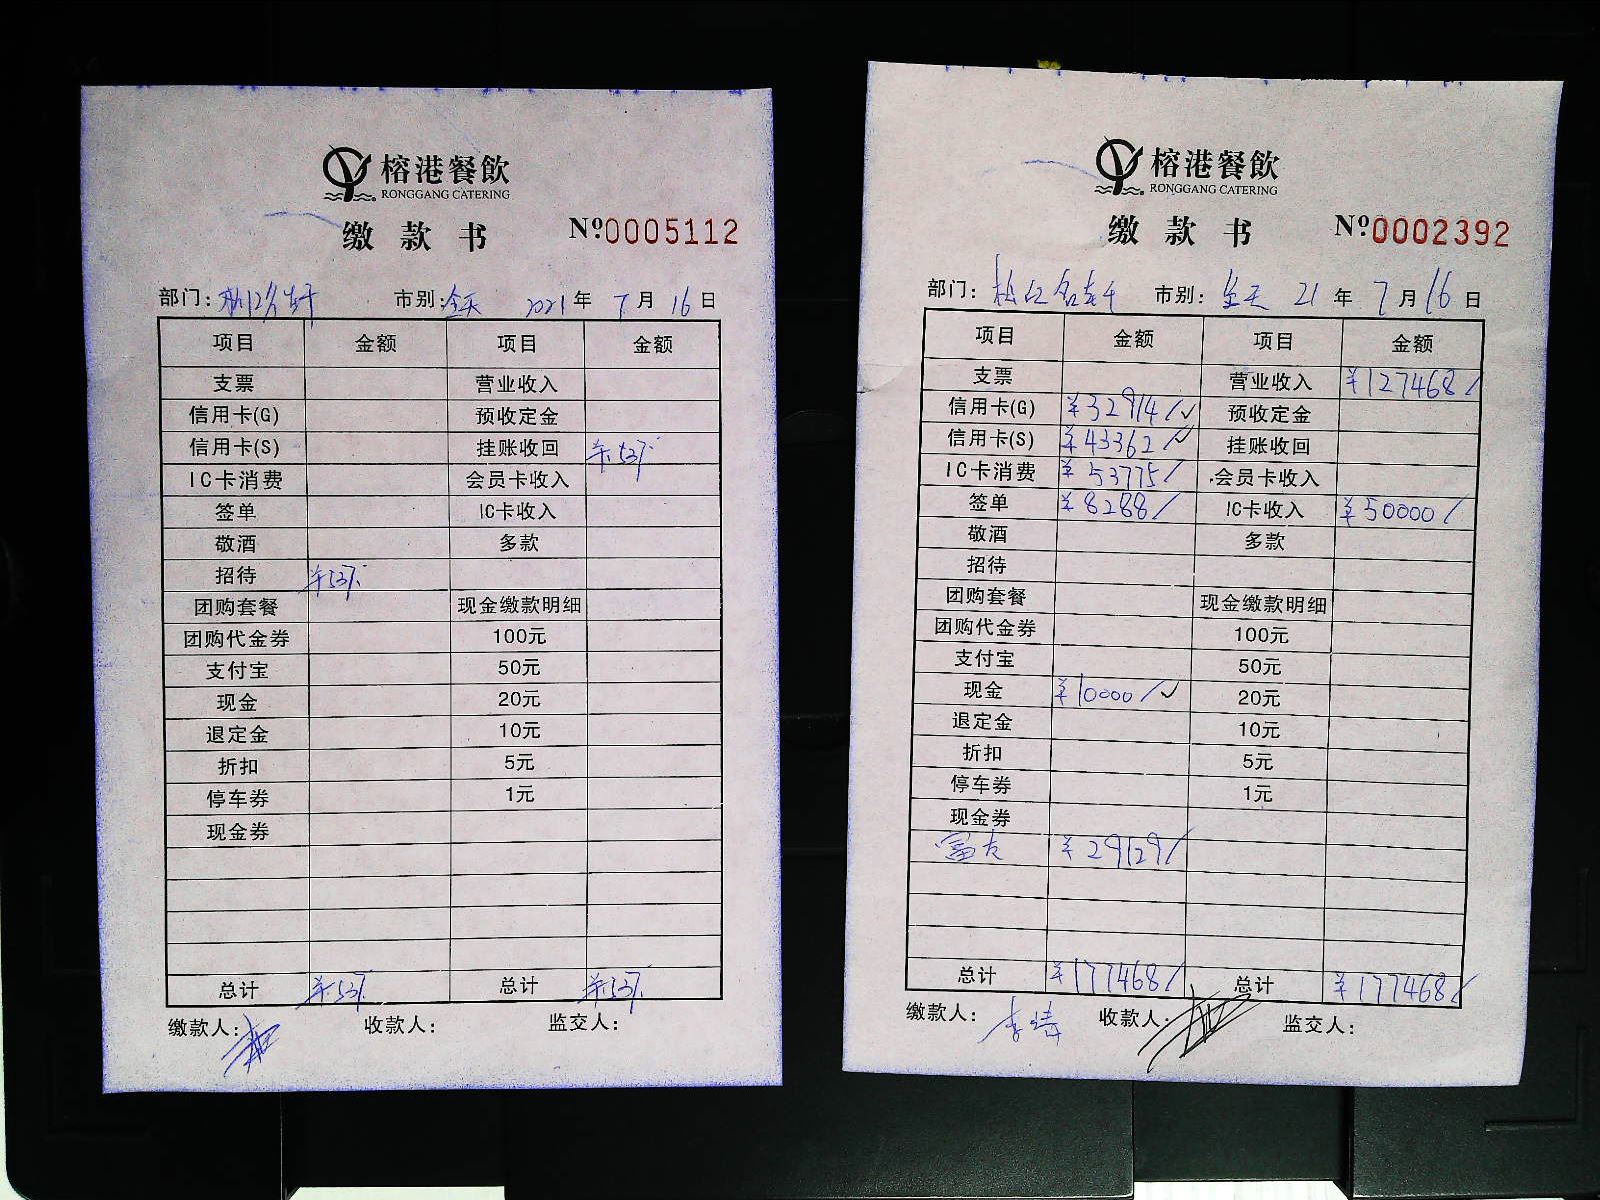 榕港餐飲
RONGGANG CATERING
缴款书 Nº0005112
部门: 市别:全天 2021年7月16日
项目 金额 项目 金额
支票 营业收入
信用卡(G) 预收定金
信用卡(S) 挂账收回
IC卡消费 会员卡收入
签单 IC卡收入
敬酒 多款
招待
团购套餐 现金缴款明细
团购代金券 100元
支付宝 50元
现金 20元
退定金 10元
折扣 5元
停车券 1元
现金券
总计 总计
缴款人: 收款人: 监交人:
榕港餐飲
RONGGANG CATERING
缴款书 Nº0002392
部门:松江名轩 市别:全天 21年7月16日
项目 金额 项目 金额
支票 营业收入 ¥127468/
信用卡(G) ¥32914/✓ 预收定金
信用卡(S) ¥43362/✓ 挂账收回
IC卡消费 ¥53775/ 会员卡收入
签单 ¥8288/ IC卡收入 ¥50000/
敬酒 多款
招待
团购套餐 现金缴款明细
团购代金券 100元
支付宝 50元
现金 ¥10000/✓ 20元
退定金 10元
折扣 5元
停车券 1元
现金券
富友 ¥29129/
总计 ¥177468/ 总计 ¥177468/
缴款人: 收款人: 监交人: